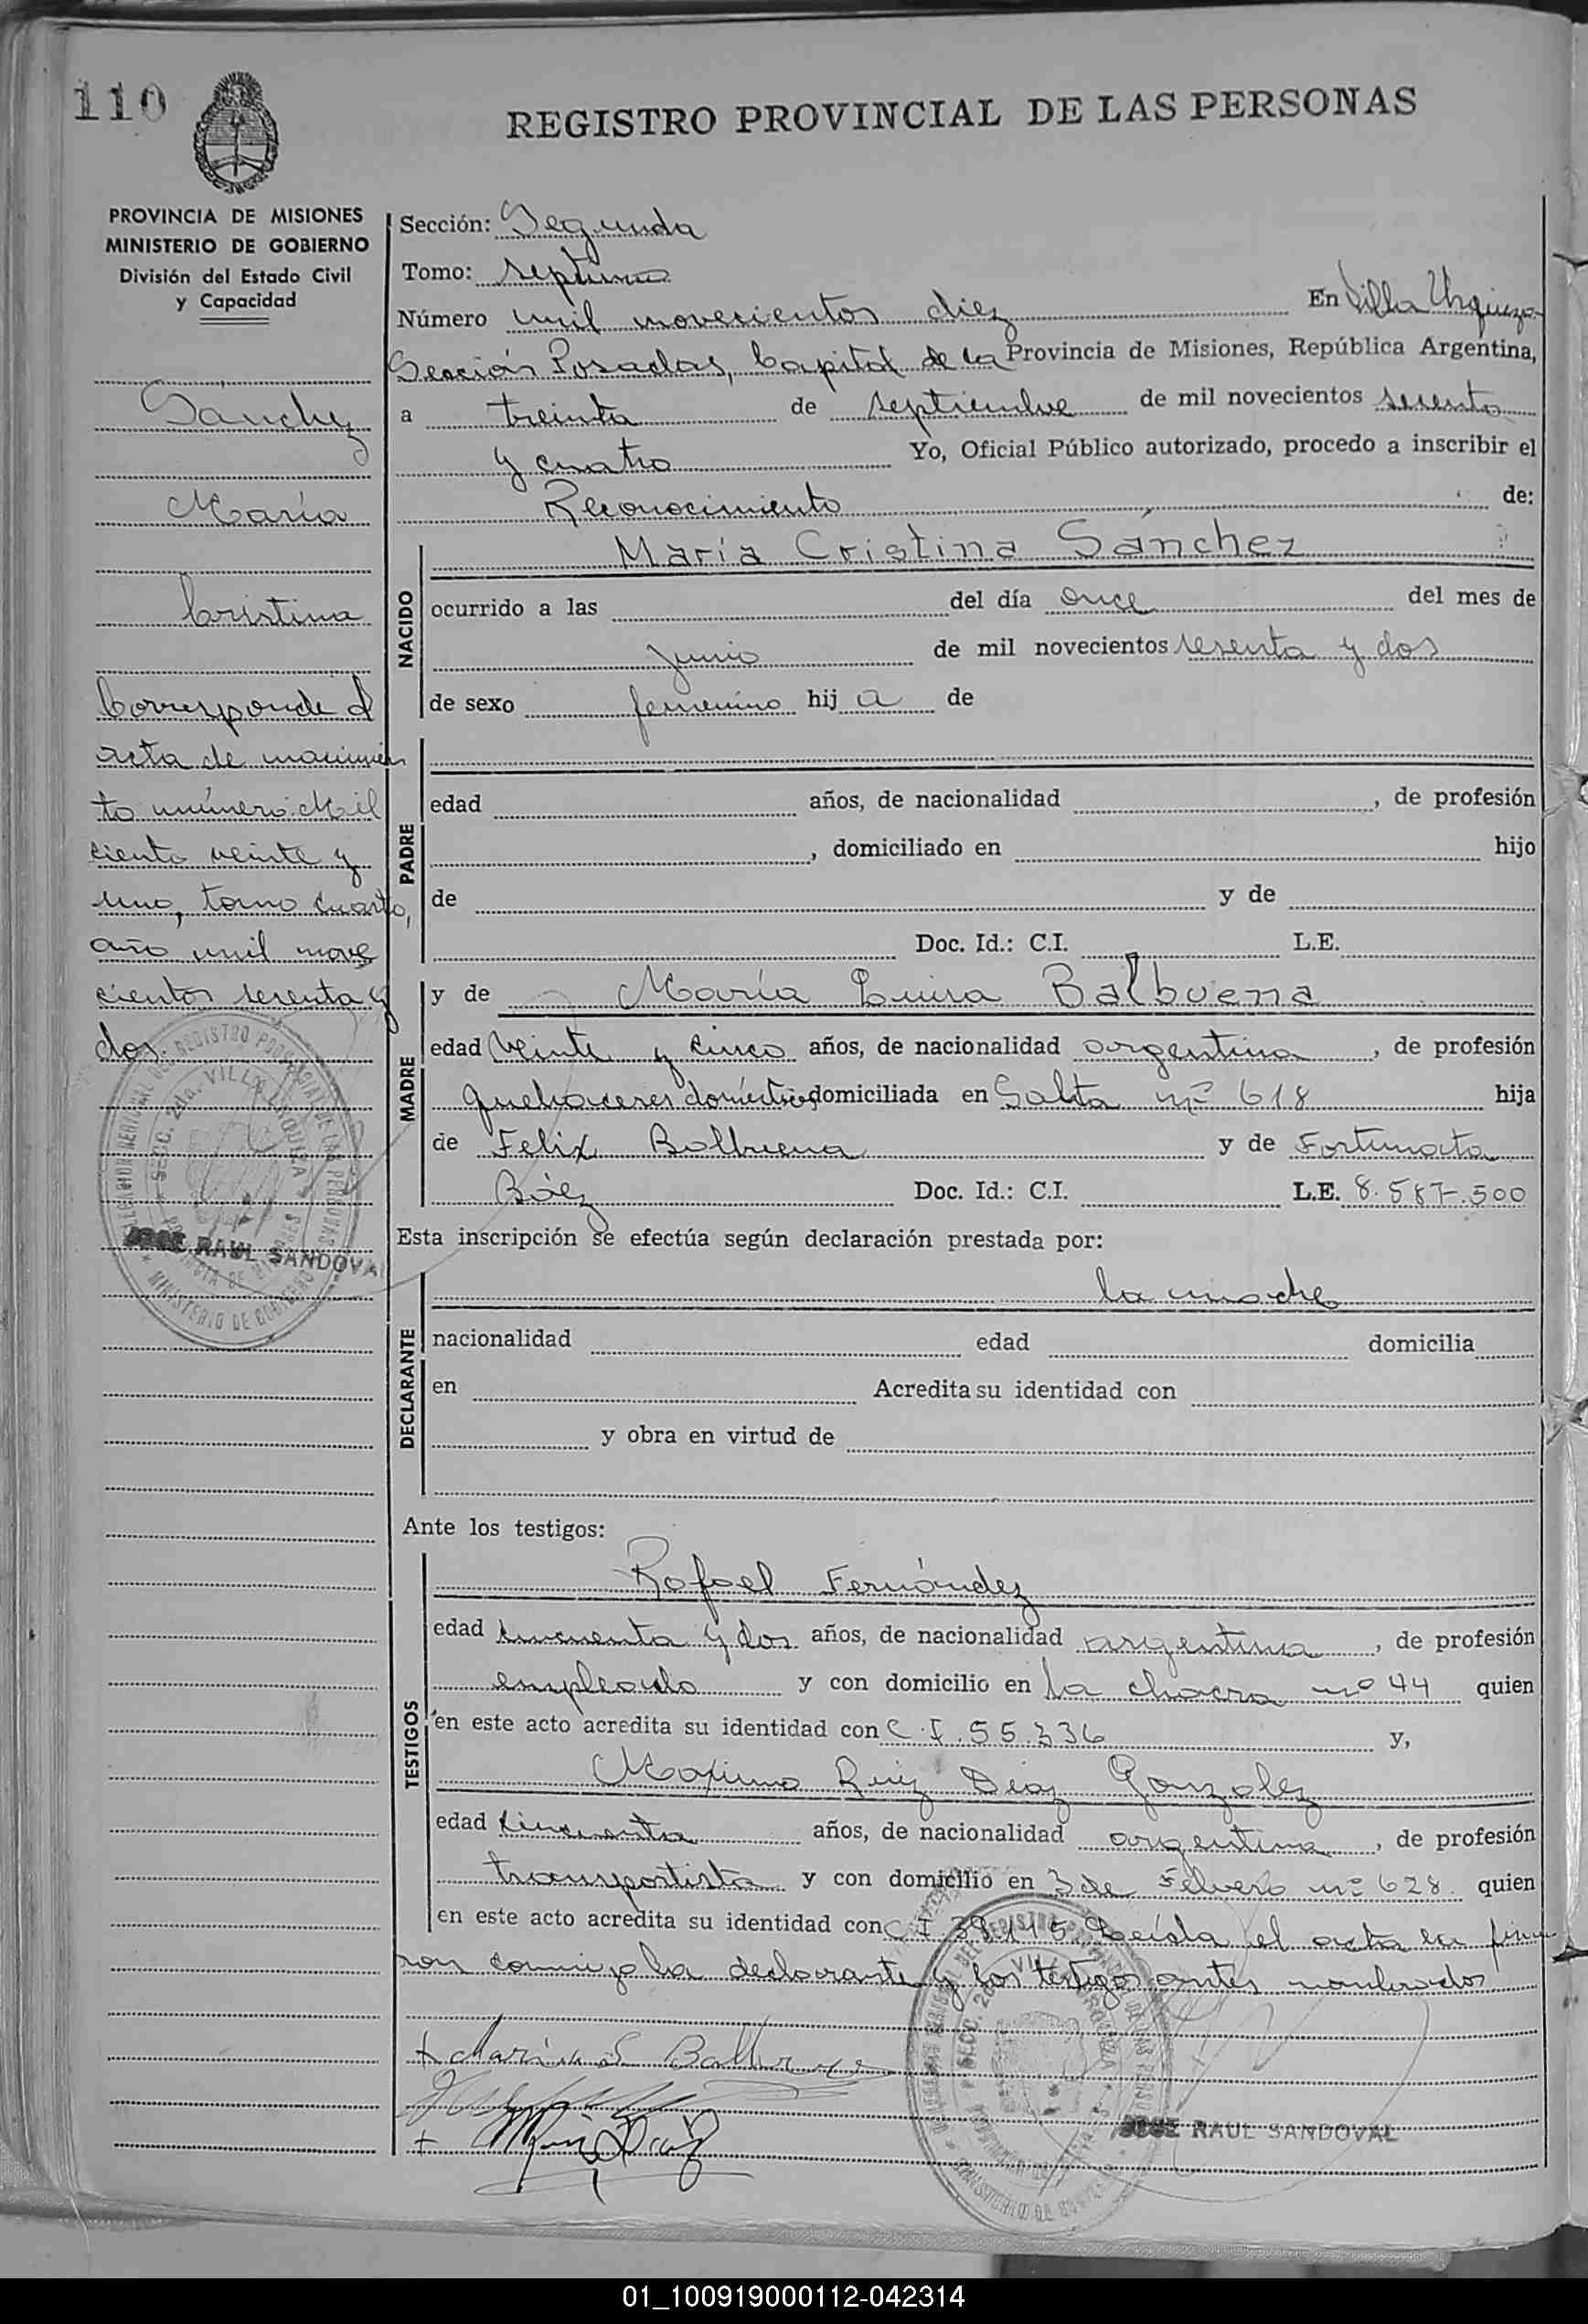 110
REGISTRO PROVINCIAL DE LAS PERSONAS
PROVINCIA DE MISIONES
MINISTERIO DE GOBIERNO
División del Estado Civil
y Capacidad
Sanchez
María
Cristina
Corresponde al
acta de nacimien
to número: Mil
ciento veinte y
uno, tomo cuarto,
año mil nove
cientos sesenta y
dos.
JOSE RAUL SANDOVAL
Sección: Segunda
Tomo: septimo
Número mil novecientos diez En Villa Urquiza
Sección Posadas, Capital de la Provincia de Misiones, República Argentina,
a treinta de septiembre de mil novecientos sesenta
y cuatro Yo, Oficial Público autorizado, procedo a inscribir el
Reconocimiento de:
NACIDO
María Cristina Sánchez
ocurrido a las del día once del mes de
junio de mil novecientos sesenta y dos
de sexo femenino hij a de
PADRE
edad años, de nacionalidad , de profesión
, domiciliado en hijo
de y de
Doc. Id.: C.I. L.E.
MADRE
y de María Luisa Balbuena
edad veinte y cinco años, de nacionalidad argentina , de profesión
quehaceres domésticos domiciliada en Salta nº 618 hija
de Felix Balbuena y de Fortunata
Báez Doc. Id.: C.I. L.E. 8.587.500
Esta inscripción se efectúa según declaración prestada por:
DECLARANTE
la madre
nacionalidad edad domicilia
en Acredita su identidad con
y obra en virtud de
Ante los testigos:
TESTIGOS
Rafael Fernández
edad cincuenta y dos años, de nacionalidad argentina , de profesión
empleado y con domicilio en la chacra nº 44 quien
en este acto acredita su identidad con C.I. 55.336 y,
Maximo Ruiz Diaz Gonzalez
edad cincuenta años, de nacionalidad argentina , de profesión
transportista y con domicilio en 3 de Febrero nº 628 quien
en este acto acredita su identidad con C.I. Leída el acta la firma
ron conmigo la declarante y los testigos antes nombrados
JOSE RAUL SANDOVAL
01_100919000112-042314